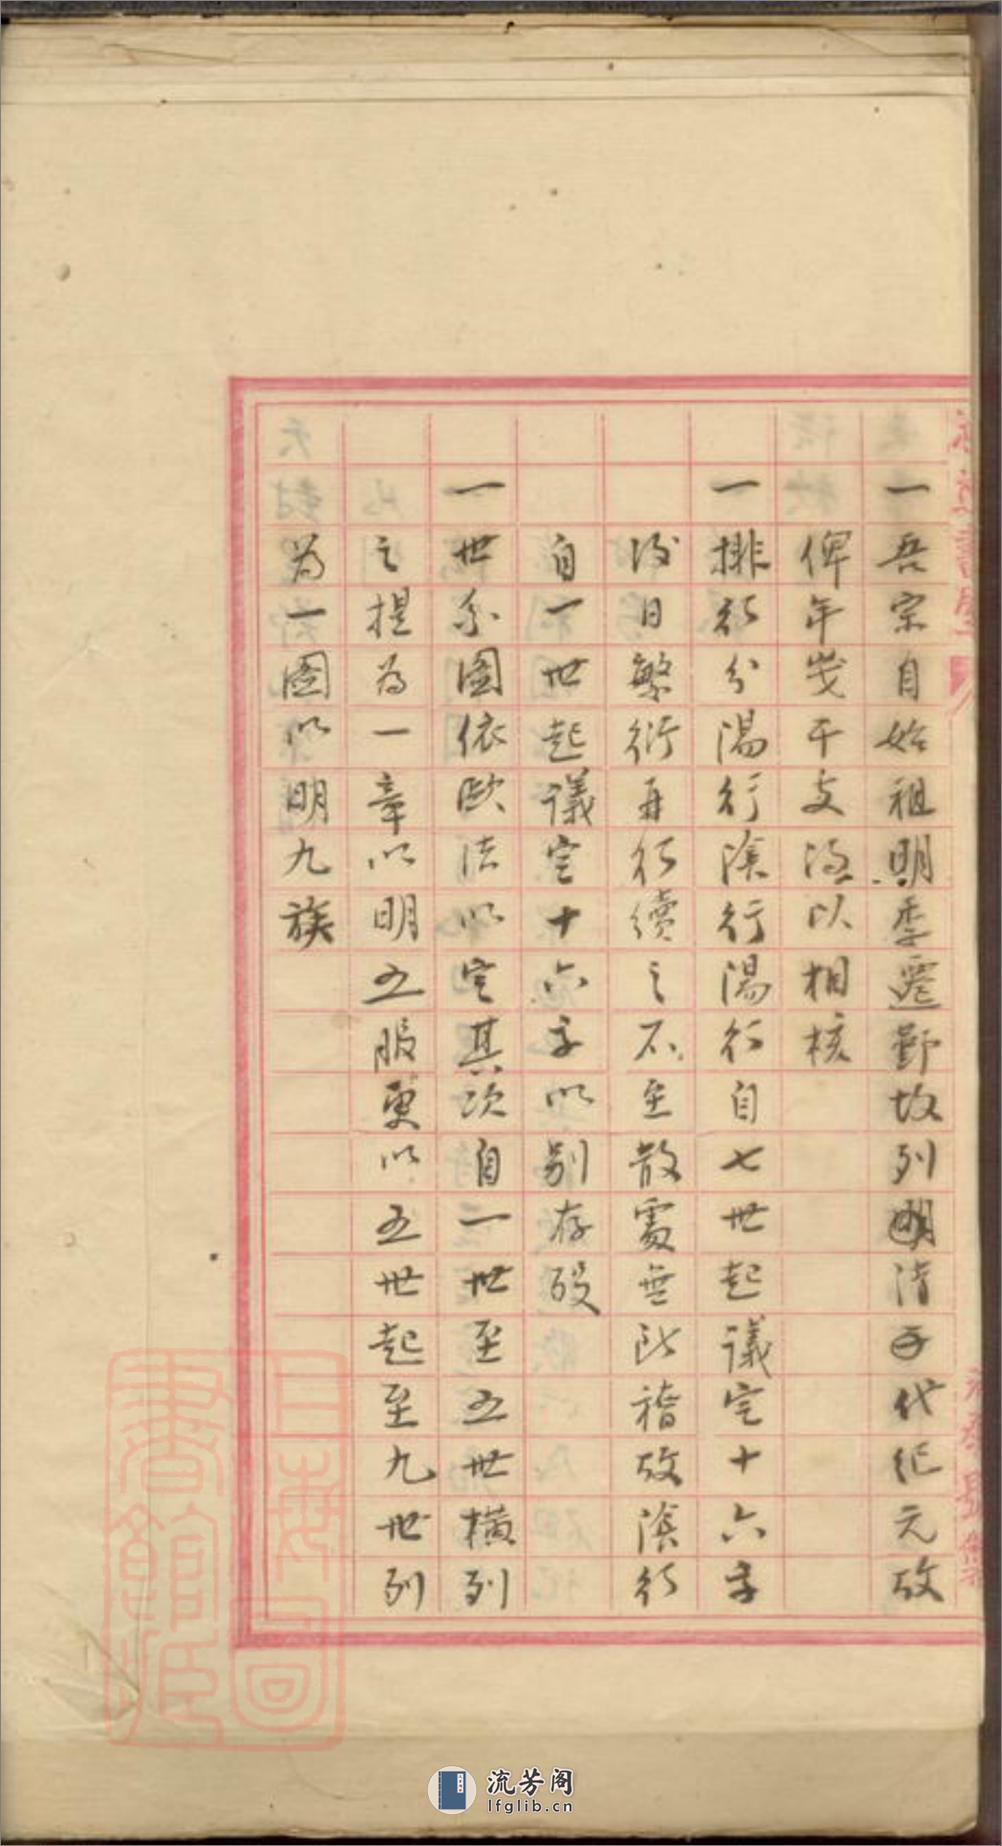 一吾宗自始祖明季遷鄞故列明清兩代紀元故
俾年歲干支得以相核
一排行分陽行陰行陽行自七世起議定十六字
後日繁衍再行續之不至散處無所稽故陰行
自一世起議定十六字以別存歿
一世系圖依歐法以定其次自一世至五世橫列
之提為一章以明五服更以五世起至九世列
為一圖以明九族
流芳阁
lfglib.cn